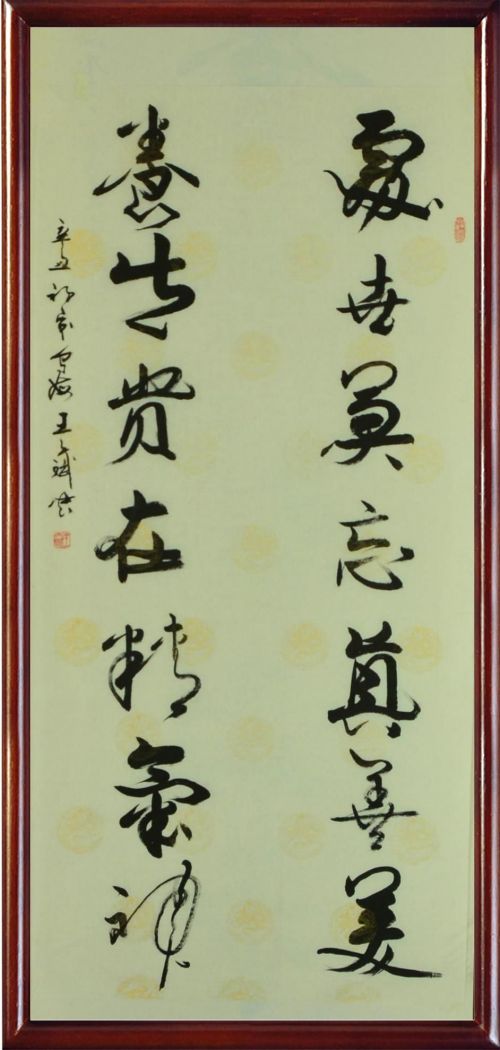 處世莫忘真善美
養生貴在精氣神
辛丑初冬